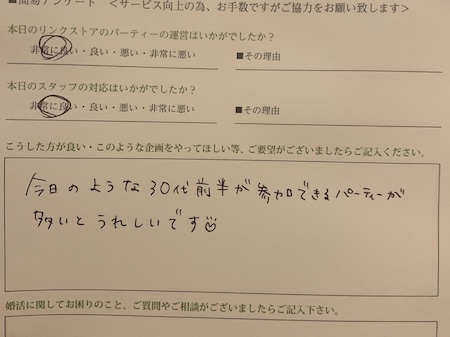 ■簡易アンケート ＜サービス向上の為、お手数ですがご協力をお願い致します＞
本日のリンクストアのパーティーの運営はいかがでしたか？
非常に良い・良い・悪い・非常に悪い ■その理由
本日のスタッフの対応はいかがでしたか？
非常に良い・良い・悪い・非常に悪い ■その理由
こうした方が良い・このような企画をやってほしい等、ご要望がございましたらご記入ください。
今日のような30代前半が参加できるパーティーが
多いとうれしいです
婚活に関してお困りのこと、ご質問やご相談がございましたらご記入下さい。